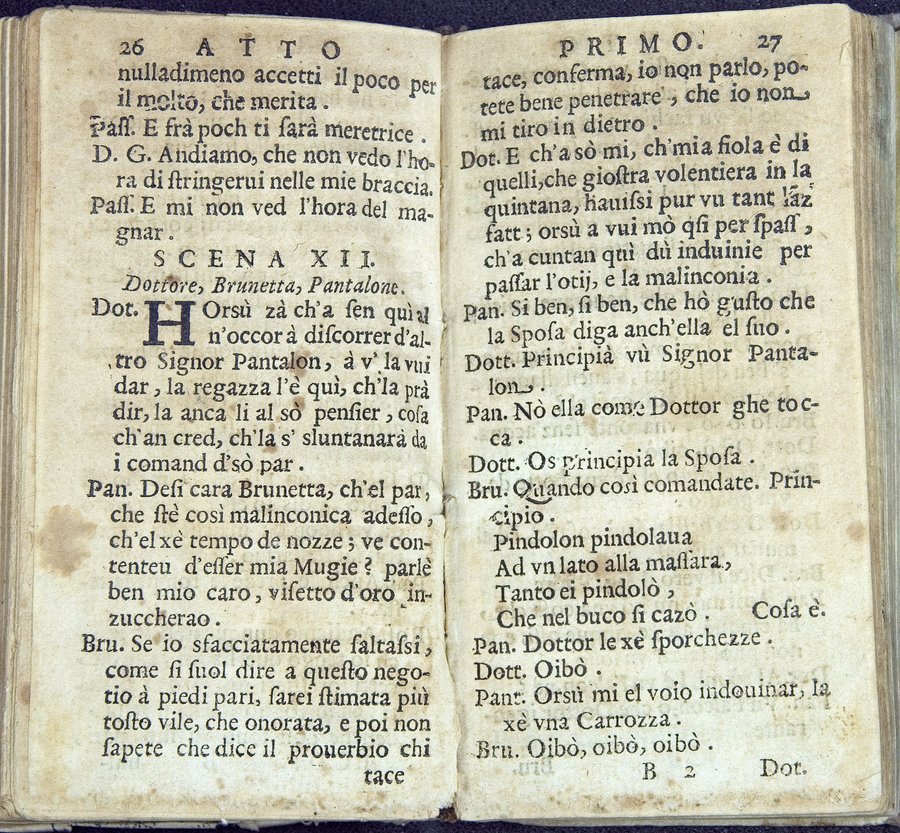 26 ATTO
nulladimeno accetti il poco per
il molto, che merita.
Paſſ. E frà poch ti ſarà meretrice.
D. G. Andiamo, che non vedo l'ho-
ra di ſtringerui nelle mie braccia.
Paſſ. E mi non ved l'hora del ma-
gnar.
SCENA XII.
Dottore, Brunetta, Pantalone.
Dot. HOrsù zà ch'a ſen quì al
n'occor à diſcorrer d'al-
tro Signor Pantalon, à v' la vui
dar, la regazza l'è quì, ch'la prà
dir, la anca li al sò penſier, coſa
ch'an cred, ch'la s' sluntanarà da
i comand d'sò par.
Pan. Deſi cara Brunetta, ch'el par,
che ſtè così malinconica adeſſo,
ch'el xè tempo de nozze; ve con-
tenteu d'eſſer mia Mugie? parlè
ben mio caro, viſetto d'oro in-
zuccherao.
Bru. Se io sfacciatamente ſaltaſſi,
come ſi ſuol dire a queſto nego-
tio à piedi pari, ſarei ſtimata più
toſto vile, che onorata, e poi non
ſapete che dice il prouerbio chi
tace
PRIMO. 27
tace, conferma, io non parlo, po-
tete bene penetrare, che io non
mi tiro in dietro.
Dot. E ch'a sò mi, ch'mia fiola è di
quelli, che gioſtra volentiera in la
quintana, hauiſsi pur vu tant
fatt; orsù a vui mò qſi per ſpaſſ,
ch'a cuntan quì dù induinie per
paſſar l'otij, e la malinconia.
Pan. Si ben, ſi ben, che hò guſto che
la Spoſa diga anch'ella el ſuo.
Dott. Principià vù Signor Panta-
lon.
Pan. Nò ella come Dottor ghe toc-
ca.
Dott. Os principia la Spoſa.
Bru. Quando così comandate. Prin-
cipio.
Pindolon pindolaua
Ad vn lato alla maſſara,
Tanto ei pindolò,
Che nel buco ſi cazò. Coſa è.
Pan. Dottor le xè ſporchezze.
Dott. Oibò.
Pant. Orsù mi el voio indouinar, la
xè vna Carrozza.
Bru. Oibò, oibò, oibò.
B 2 Dot.